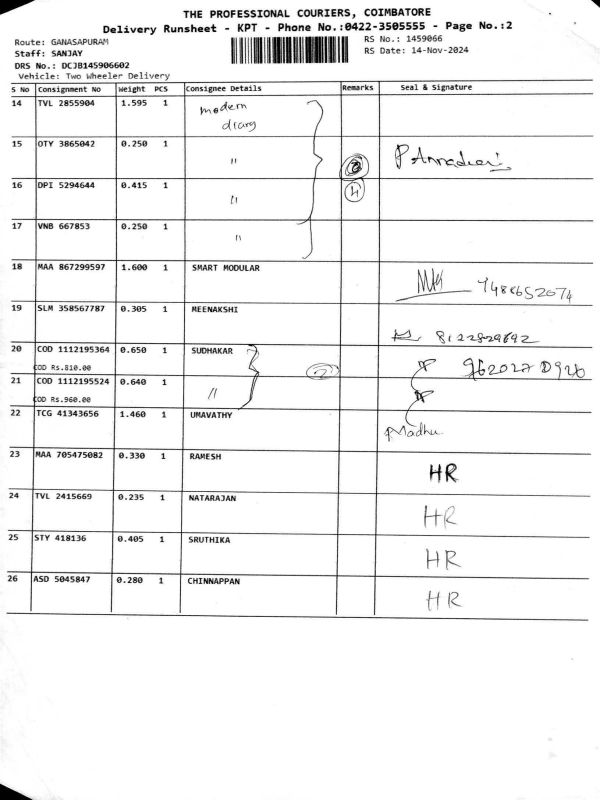 THE PROFESSIONAL COURIERS, COIMBATORE
Delivery Runsheet - KPT - Phone No.:0422-3505555 - Page No.:2
Route: GANASAPURAM
RS No.: 1459066
Staff: SANJAY
RS Date: 14-Nov-2024
DRS No.: DCJB145906602
Vehicle: Two Wheeler Delivery
S No Consignment No Weight PCS Consignee Details Remarks Seal & Signature
14 TVL 2855904 1.595 1 modern
15 OTY 3865042 0.250 1 "
16 DPI 5294644 0.415 1 " 4
17 VNB 667853 0.250 1 "
18 MAA 867299597 1.600 1 SMART MODULAR
19 SLM 358567787 0.305 1 MEENAKSHI
20 COD 1112195364 0.650 1 SUDHAKAR 2
COD Rs.810.00
21 COD 1112195524 0.640 1 "
COD Rs.960.00
22 TCG 41343656 1.460 1 UMAVATHY Madhu
23 MAA 705475082 0.330 1 RAMESH HR
24 TVL 2415669 0.235 1 NATARAJAN HR
25 STY 418136 0.405 1 SRUTHIKA HR
26 ASD 5045847 0.280 1 CHINNAPPAN HR